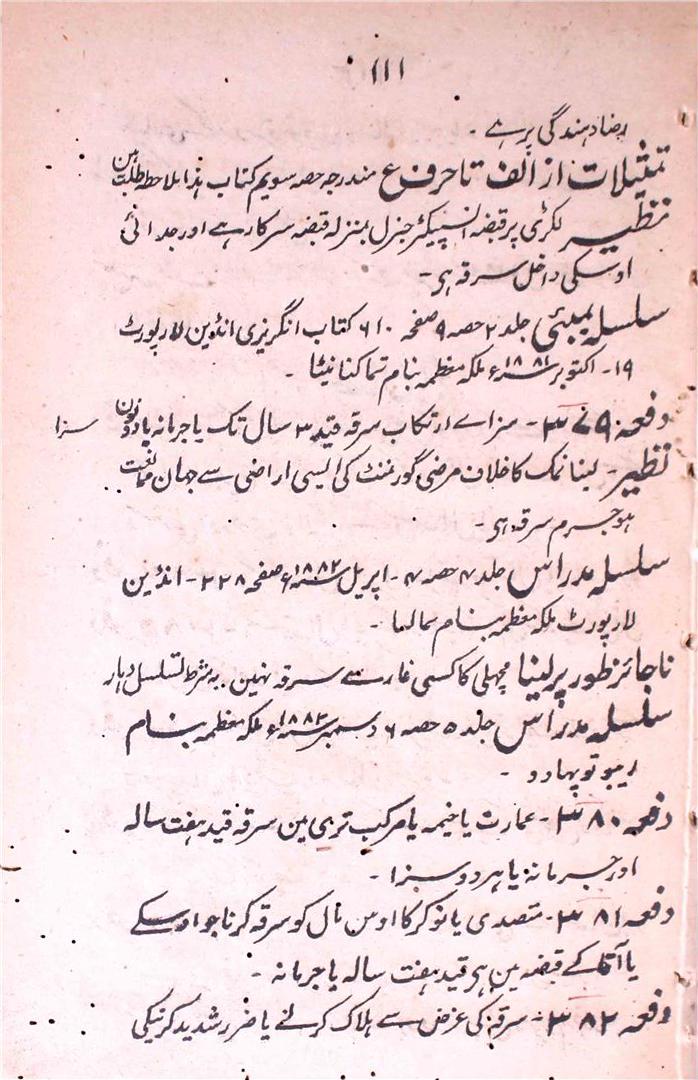 ۱۱۱
رضا دہندگی پر ہے ۔
تمثیلات از الف تا حرف ع مندرجہ حصہ سویم کتاب ہذا ملاحظہ طلب ہین
نظیر لکڑی پر قبضہ انسپیکٹر جنرل بمنزلہ قبضہ سرکار ہے اور جدائی
اوسکی داخل سرقہ ہی ۔
سلسلہ بمبئی جلد ۲ حصہ ۹ صفحہ ۶۱۰ کتاب انگریزی انڈین لا رپورٹ
۱۹ ۔ اکتوبر ۱۸۸۱ء ملکہ معظمہ بنام تماکنانیٹا ۔
دفعہ ۳۷۹ ۔ سزاے ارتکاب سرقہ قید ۳ سال تک یا جرمانہ یا دونون سزا
نظیر ۔ لینا نمک کا خلاف مرضی گورنمنٹ کی ایسی اراضی سے جہان ممانعت
ہو جرم سرقہ ہی ۔
سلسلہ مدراس جلد ۴ حصہ ۴ ۔ اپریل ۱۸۸۲ء صفحہ ۲۲۸ ۔ انڈین
لا رپورٹ ملکہ معظمہ بنام سمالما ۔
ناجائز طور پر لینا مچھلی کا کسی غار سے سرقہ نہین ۔ بشرط تسلسل دہار
سلسلہ مدراس جلد ۵ حصہ ۶ دسمبر ۱۸۸۲ء ملکہ معظمہ بنام
ریبو توپہادو ۔
دفعہ ۳۸۰ ۔ عمارت یا خیمہ یا مرکب تری مین سرقہ قید ہفت سالہ
اور جرمانہ یا ہر دو سزا ۔
دفعہ ۳۸۱ ۔ متصدی یا نوکر کا اوس مال کو سرقہ کرنا جو اوسکے
یا آقا کے قبضہ مین ہی قید ہفت سالہ یا جرمانہ ۔
دفعہ ۳۸۲ ۔ سرقہ کی غرض سے ہلاک کرنے یا ضرر شدید کرنیکی